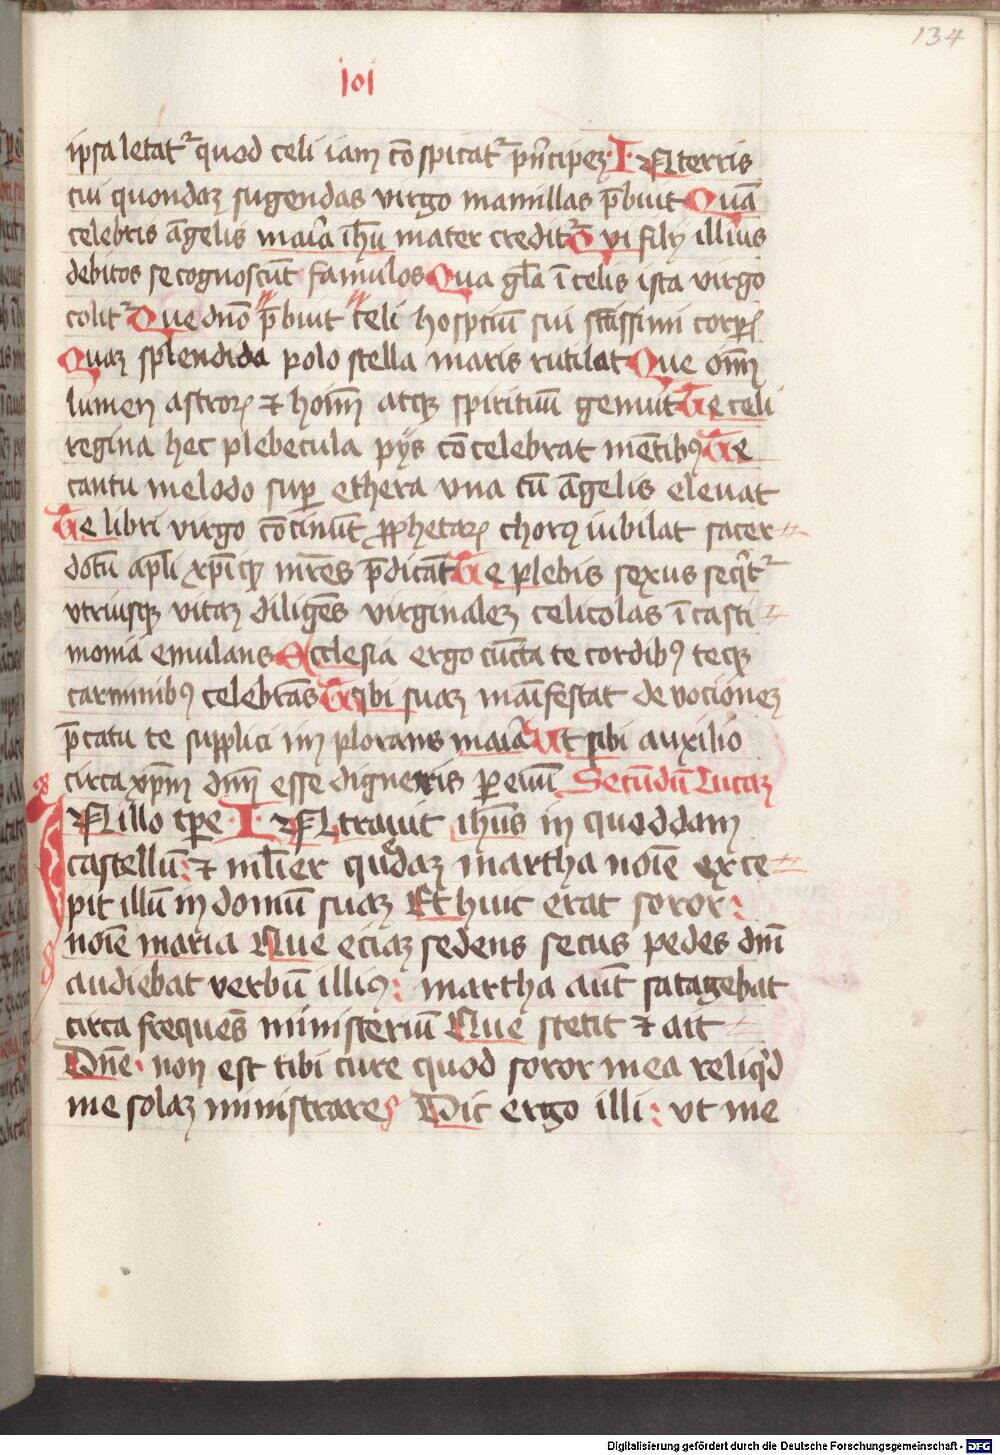 134
ioi
ipsa letat᷑ quod celi iam cōspicat᷑ pn̄cipeʒ I N terris
cui quondaʒ sugendas virgo mamillas p̄buit Quā
celebris āgelis maīa ih̄u mater credit᷑ Q vi filij illius
debitos se cognoscūt famulos Qua gl̄a ī celis ista virgo
colit᷑ Que dn̄o p̄buit celi hospciū sui sc̄assimi corpꝫ
Quaʒ splendida polo stella maris rutilat Que oīm
lumen astroꝝ ⁊ hoīm atqʒ spirituū genuit Te celi
regina hec plebecula pijs cōcelebrat mētibꝰ Te
cantu melodo suꝑ ethera vna cū āgelis eleuat
Te libri virgo cōtinūt ꝓphetaꝝ chorꝰ iubilat sacer⸗
dotū apl̄i xp̄iqʒ mr̄es p̄dicāt Te plebis sexus seqͥt᷑
vtriusqʒ vitaʒ diligēs virginaleʒ celicolas ī casti⸗
moniā emulans Ecclesia ergo cūcta te cordibꝰ teqʒ
carminibꝰ celebrās Tibi suaʒ maīfestat deuocioneʒ
p̄catu te supplici implorans maīa Ut sibi auxilio
circa xp̄m dn̄m esse digneris per euū Secūdū Lucaʒ
N illo tꝑe I Ntrauit ih̄us in quoddam
castellū: ⁊ ml̄ier qͥdaʒ martha noīe exce⸗
pit illū in domū suaʒ Et huic erat soror:
noīe maria Que eciaʒ sedens secus pedes dn̄i
audiebat verbū illiꝰ: martha aūt satagebat
circa frequēs ministeriū Que stetit ⁊ ait
Dn̄e non est tibi cure quod soror mea reliqͥd
me solaʒ ministrare Dic ergo illi: vt me
Digitalisierung gefördert durch die Deutsche Forschungsgemeinschaft - DFG